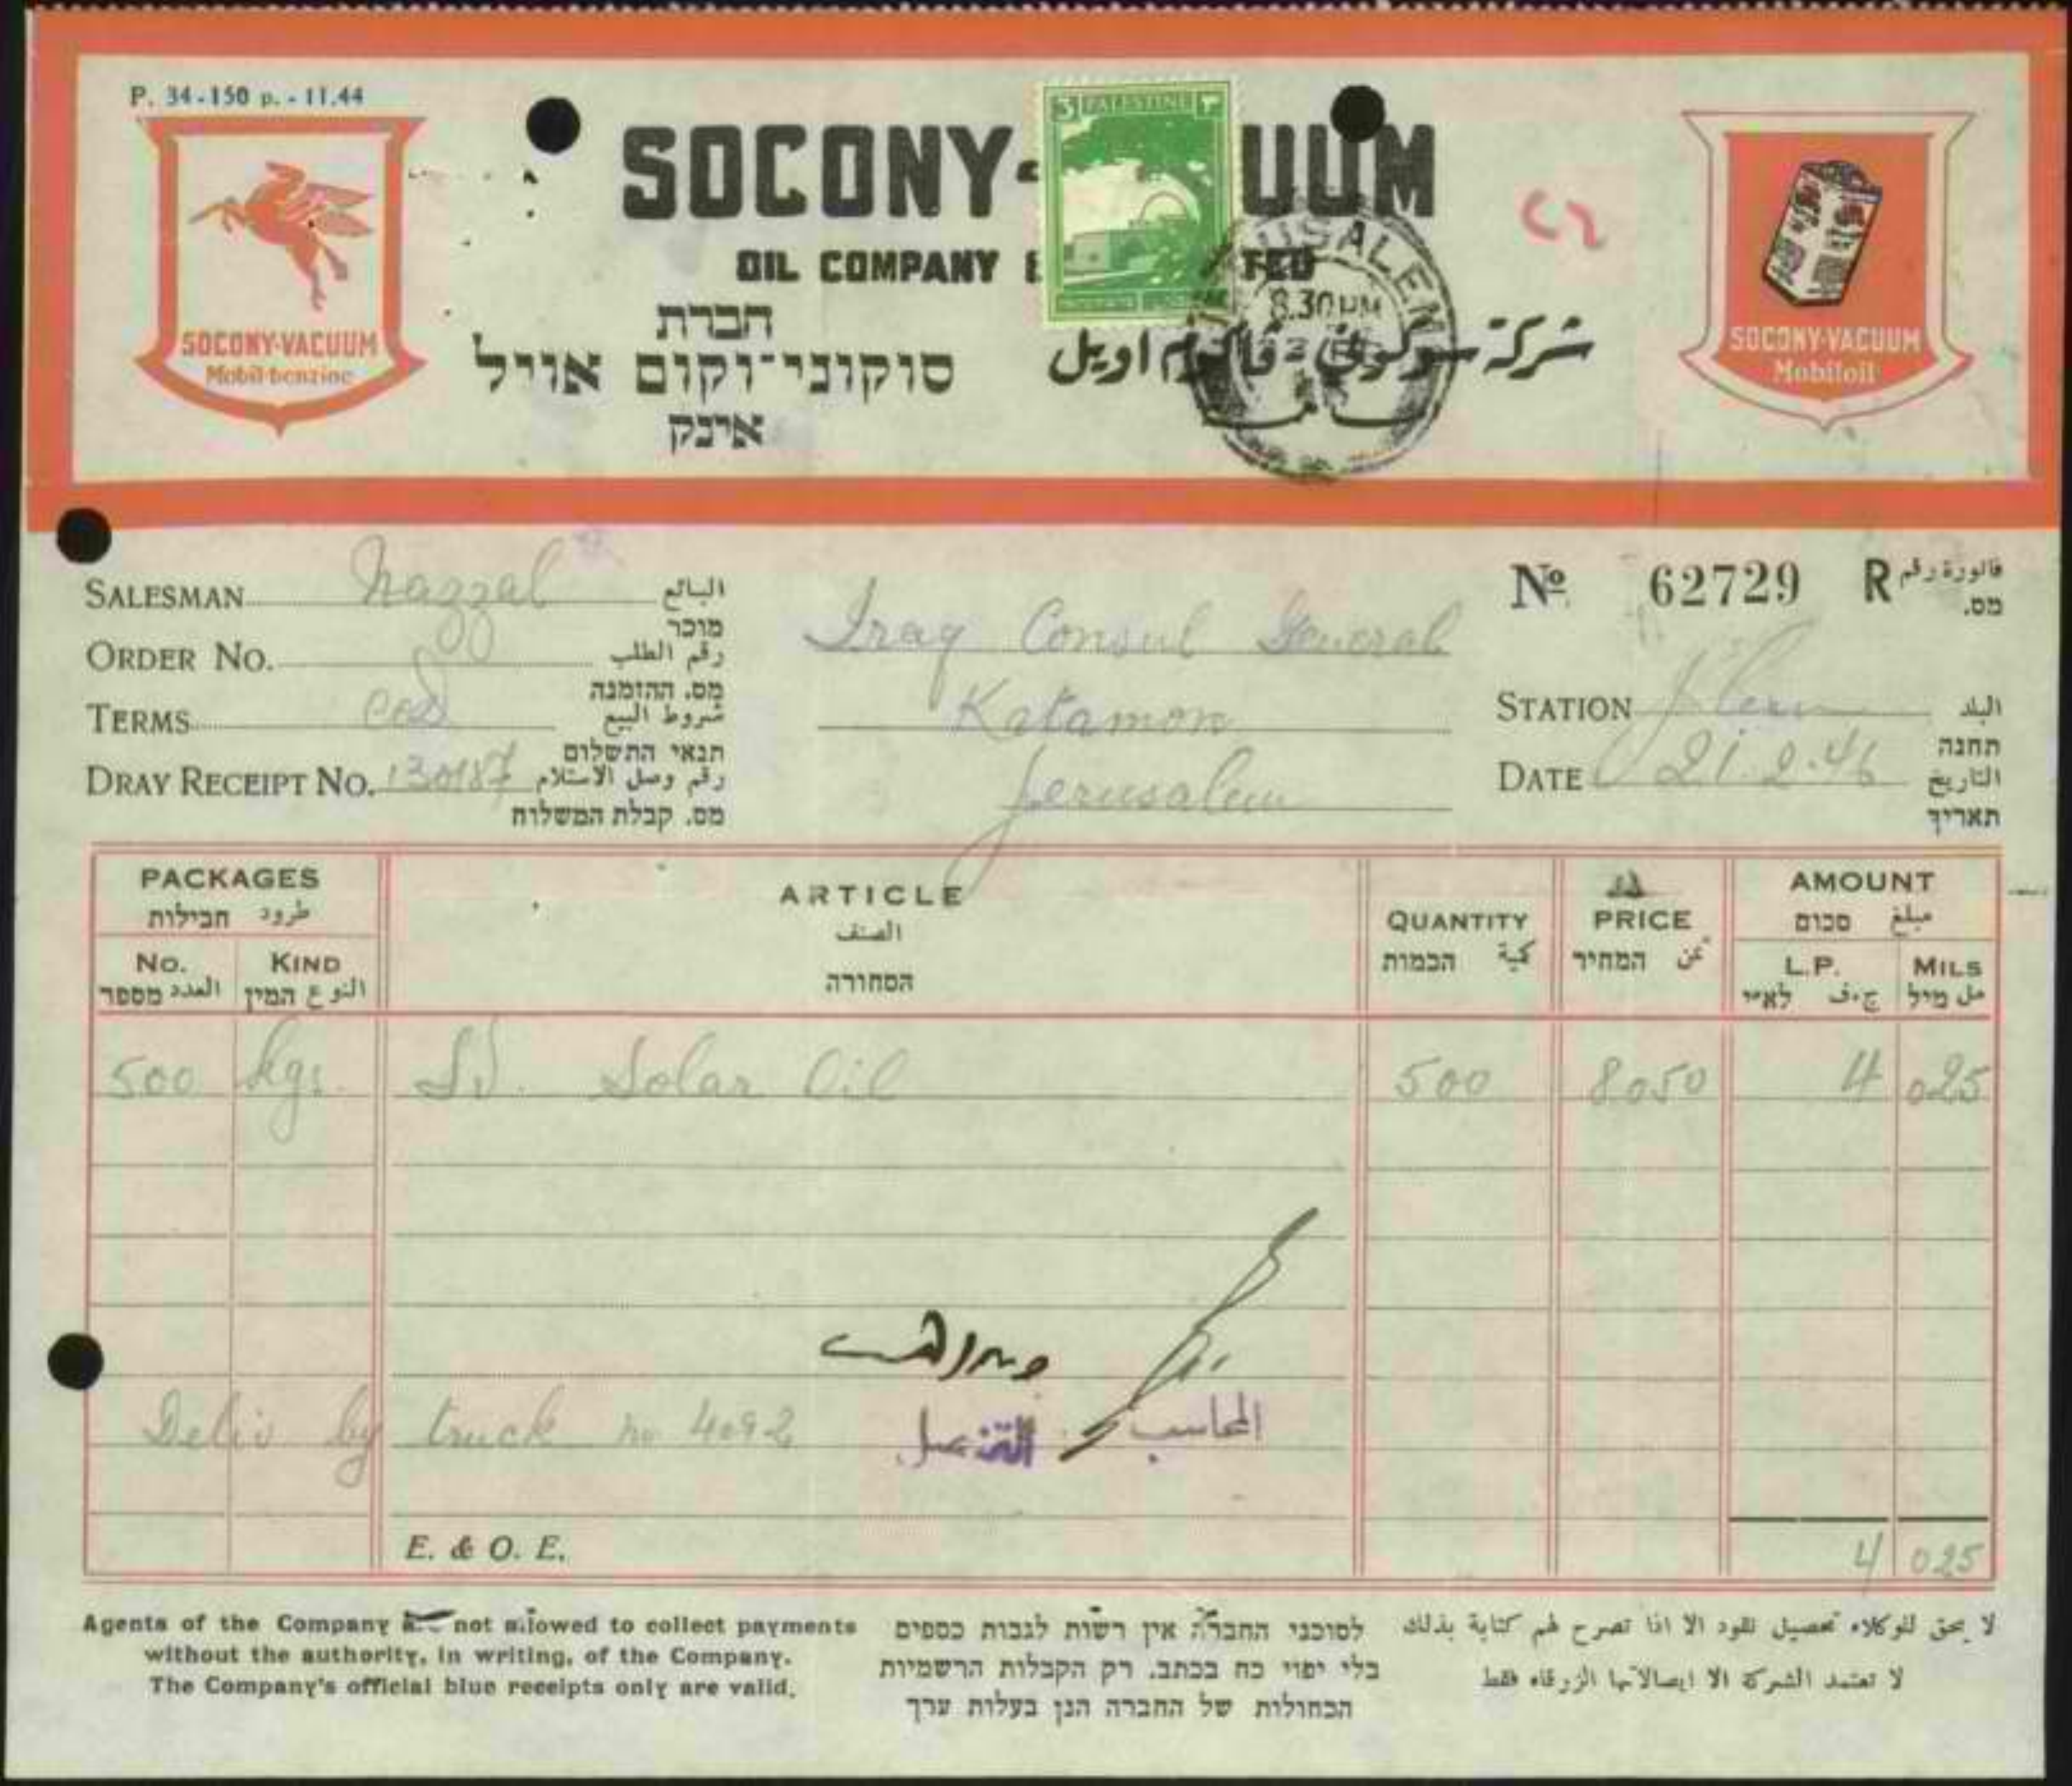 P. 34-150 p. - 11.44
SOCONY-
UUM
3 PALESTINE ٣
OIL COMPANY
TED
USALEM
8.30 PM
חברת
סוקוני־וקום אויל
אינק
شركة سوكوني - ڤاكوم اويل
SOCONY-VACUUM
Mobil-benzine
SOCONY-VACUUM
Mobiloil
Nº 62729 R فاتورة رقم
מס.
SALESMAN Nazzal البائع
מוכר
ORDER No. رقم الطلب
מס. ההזמנה
TERMS cod شروط البيع
תנאי התשלום
DRAY RECEIPT No. 130187 رقم وصل الاستلام
מס. קבלת המשלוח
Iraq Consul General
Katamon
Jerusalem
STATION J'lem البلد
תחנה
DATE 21.2.46 التاريخ
תאריך
PACKAGES
طرود חבילות
No.
العدد מספר
KIND
النوع המין
ARTICLE
الصنف
הסחורה
QUANTITY
كمية הכמות
PRICE
ثمن המחיר
AMOUNT
مبلغ סכום
L.P.
ج.ف לא״י
MILS
مل מיל
500 kgs. Solar Oil 500 8050 4 025
Deliv by truck no 4092
المحاسب
القنصل
E. & O. E.
4 025
Agents of the Company not allowed to collect payments
without the authority, in writing, of the Company.
The Company's official blue receipts only are valid.
לסוכני החברה אין רשות לגבות כספים
בלי יפוי כח בכתב. רק הקבלות הרשמיות
הכחולות של החברה הנן בעלות ערך
لا يحق للوكلاء تحصيل نقود الا اذا تصرح لهم كتابة بذلك
لا تعتمد الشركة الا ايصالاتها الزرقاء فقط